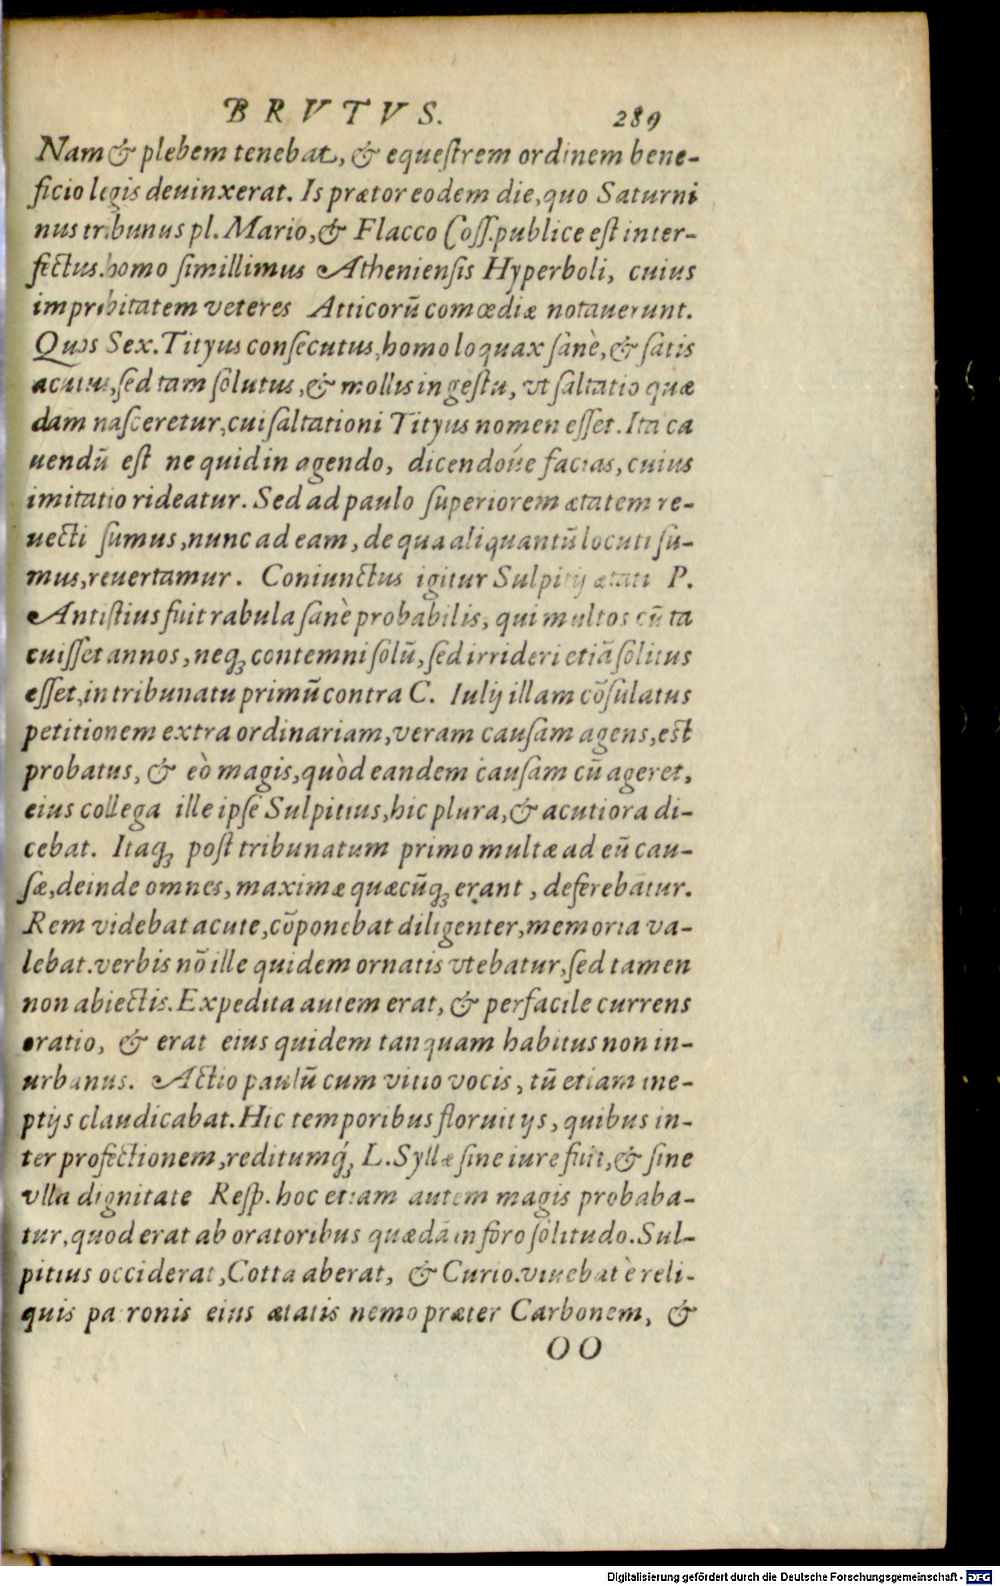 BRVTVS. 289
Nam & plebem tenebat, & equeſtrem ordinem bene-
ficio legis deuinxerat. Is prætor eodem die, quo Saturni
nus tribunus pl. Mario, & Flacco Coſſ. publice eſt inter-
fectus. homo ſimillimus Athenienſis Hyperboli, cuius
improbitatem veteres Atticorū comœdiæ notauerunt.
Quos Sex. Tityus conſecutus, homo loquax ſanè, & ſatis
acutus, ſed tam ſolutus, & mollis in geſtu, vt ſaltatio quæ
dam naſceretur, cui ſaltationi Tityus nomen eſſet. Ita ca
uendū eſt ne quid in agendo, dicendóue facias, cuius
imitatio rideatur. Sed ad paulo ſuperiorem ætatem re-
uecti ſumus, nunc ad eam, de qua aliquantū locuti ſu-
mus, reuertamur. Coniunctus igitur Sulpitij ætati P.
Antiſtius fuit rabula ſanè probabilis, qui multos cū ta
cuiſſet annos, neqꝫ contemni ſolū, ſed irrideri etiā ſolitus
eſſet, in tribunatu primū contra C. Iulij illam cōſulatus
petitionem extra ordinariam, veram cauſam agens, eſt
probatus, & eò magis, quòd eandem cauſam cū ageret,
eius collega ille ipſe Sulpitius, hic plura, & acutiora di-
cebat. Itaqꝫ poſt tribunatum primo multæ ad eū cau-
ſæ, deinde omnes, maximæ quæcūqꝫ erant, deferebantur.
Rem videbat acute, cōponebat diligenter, memoria va-
lebat. verbis nō ille quidem ornatis vtebatur, ſed tamen
non abiectis. Expedita autem erat, & perfacile currens
oratio, & erat eius quidem tanquam habitus non in-
urbanus. Actio paulū cum vitio vocis, tū etiam ine-
ptijs claudicabat. Hic temporibus floruit ijs, quibus in-
ter profectionem, reditumq́ꝫ L. Syllæ ſine iure fuit, & ſine
vlla dignitate Reſp. hoc etiam autem magis probaba-
tur, quod erat ab oratoribus quædā in foro ſolitudo. Sul-
pitius occiderat, Cotta aberat, & Curio. viuebat è reli-
quis patronis eius ætatis nemo præter Carbonem, &
OO
Digitalisierung gefördert durch die Deutsche Forschungsgemeinschaft - DFG